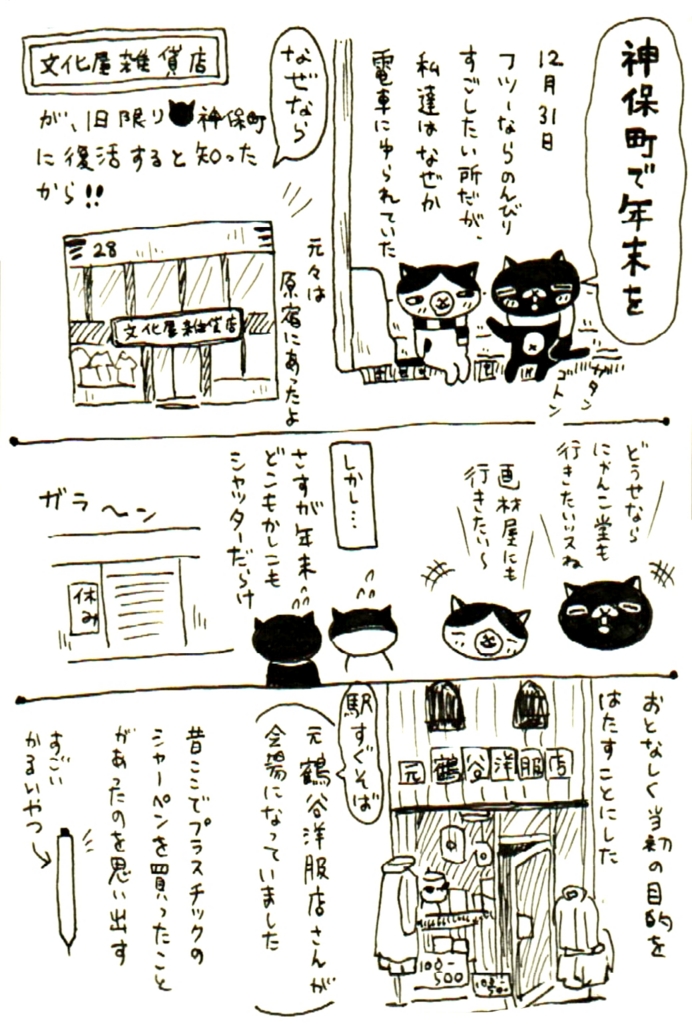 神保町で年末を
12月31日
フツーならのんびり
すごしたい所だが、
私達はなぜか
電車にゆられていた
ガタン
ゴトン
なぜなら
文化屋雑貨店
が、1日限り神保町
に復活すると知った
から!!
元々は
原宿にあったよ
28
文化屋雑貨店
どうせなら
にゃんこ堂も
行きたいッスね
画材屋にも
行きたい〜
しかし…
さすが年末
どこもかしこも
シャッターだらけ
ガラ〜ン
休み
おとなしく当初の目的を
はたすことにした
元鶴谷洋服店
100-
500
100-
500-
駅すぐそば
元鶴谷洋服店さんが
会場になっていました
昔ここでプラスチックの
シャーペンを買ったこと
があったのを思い出す
すごい
かるいやつ